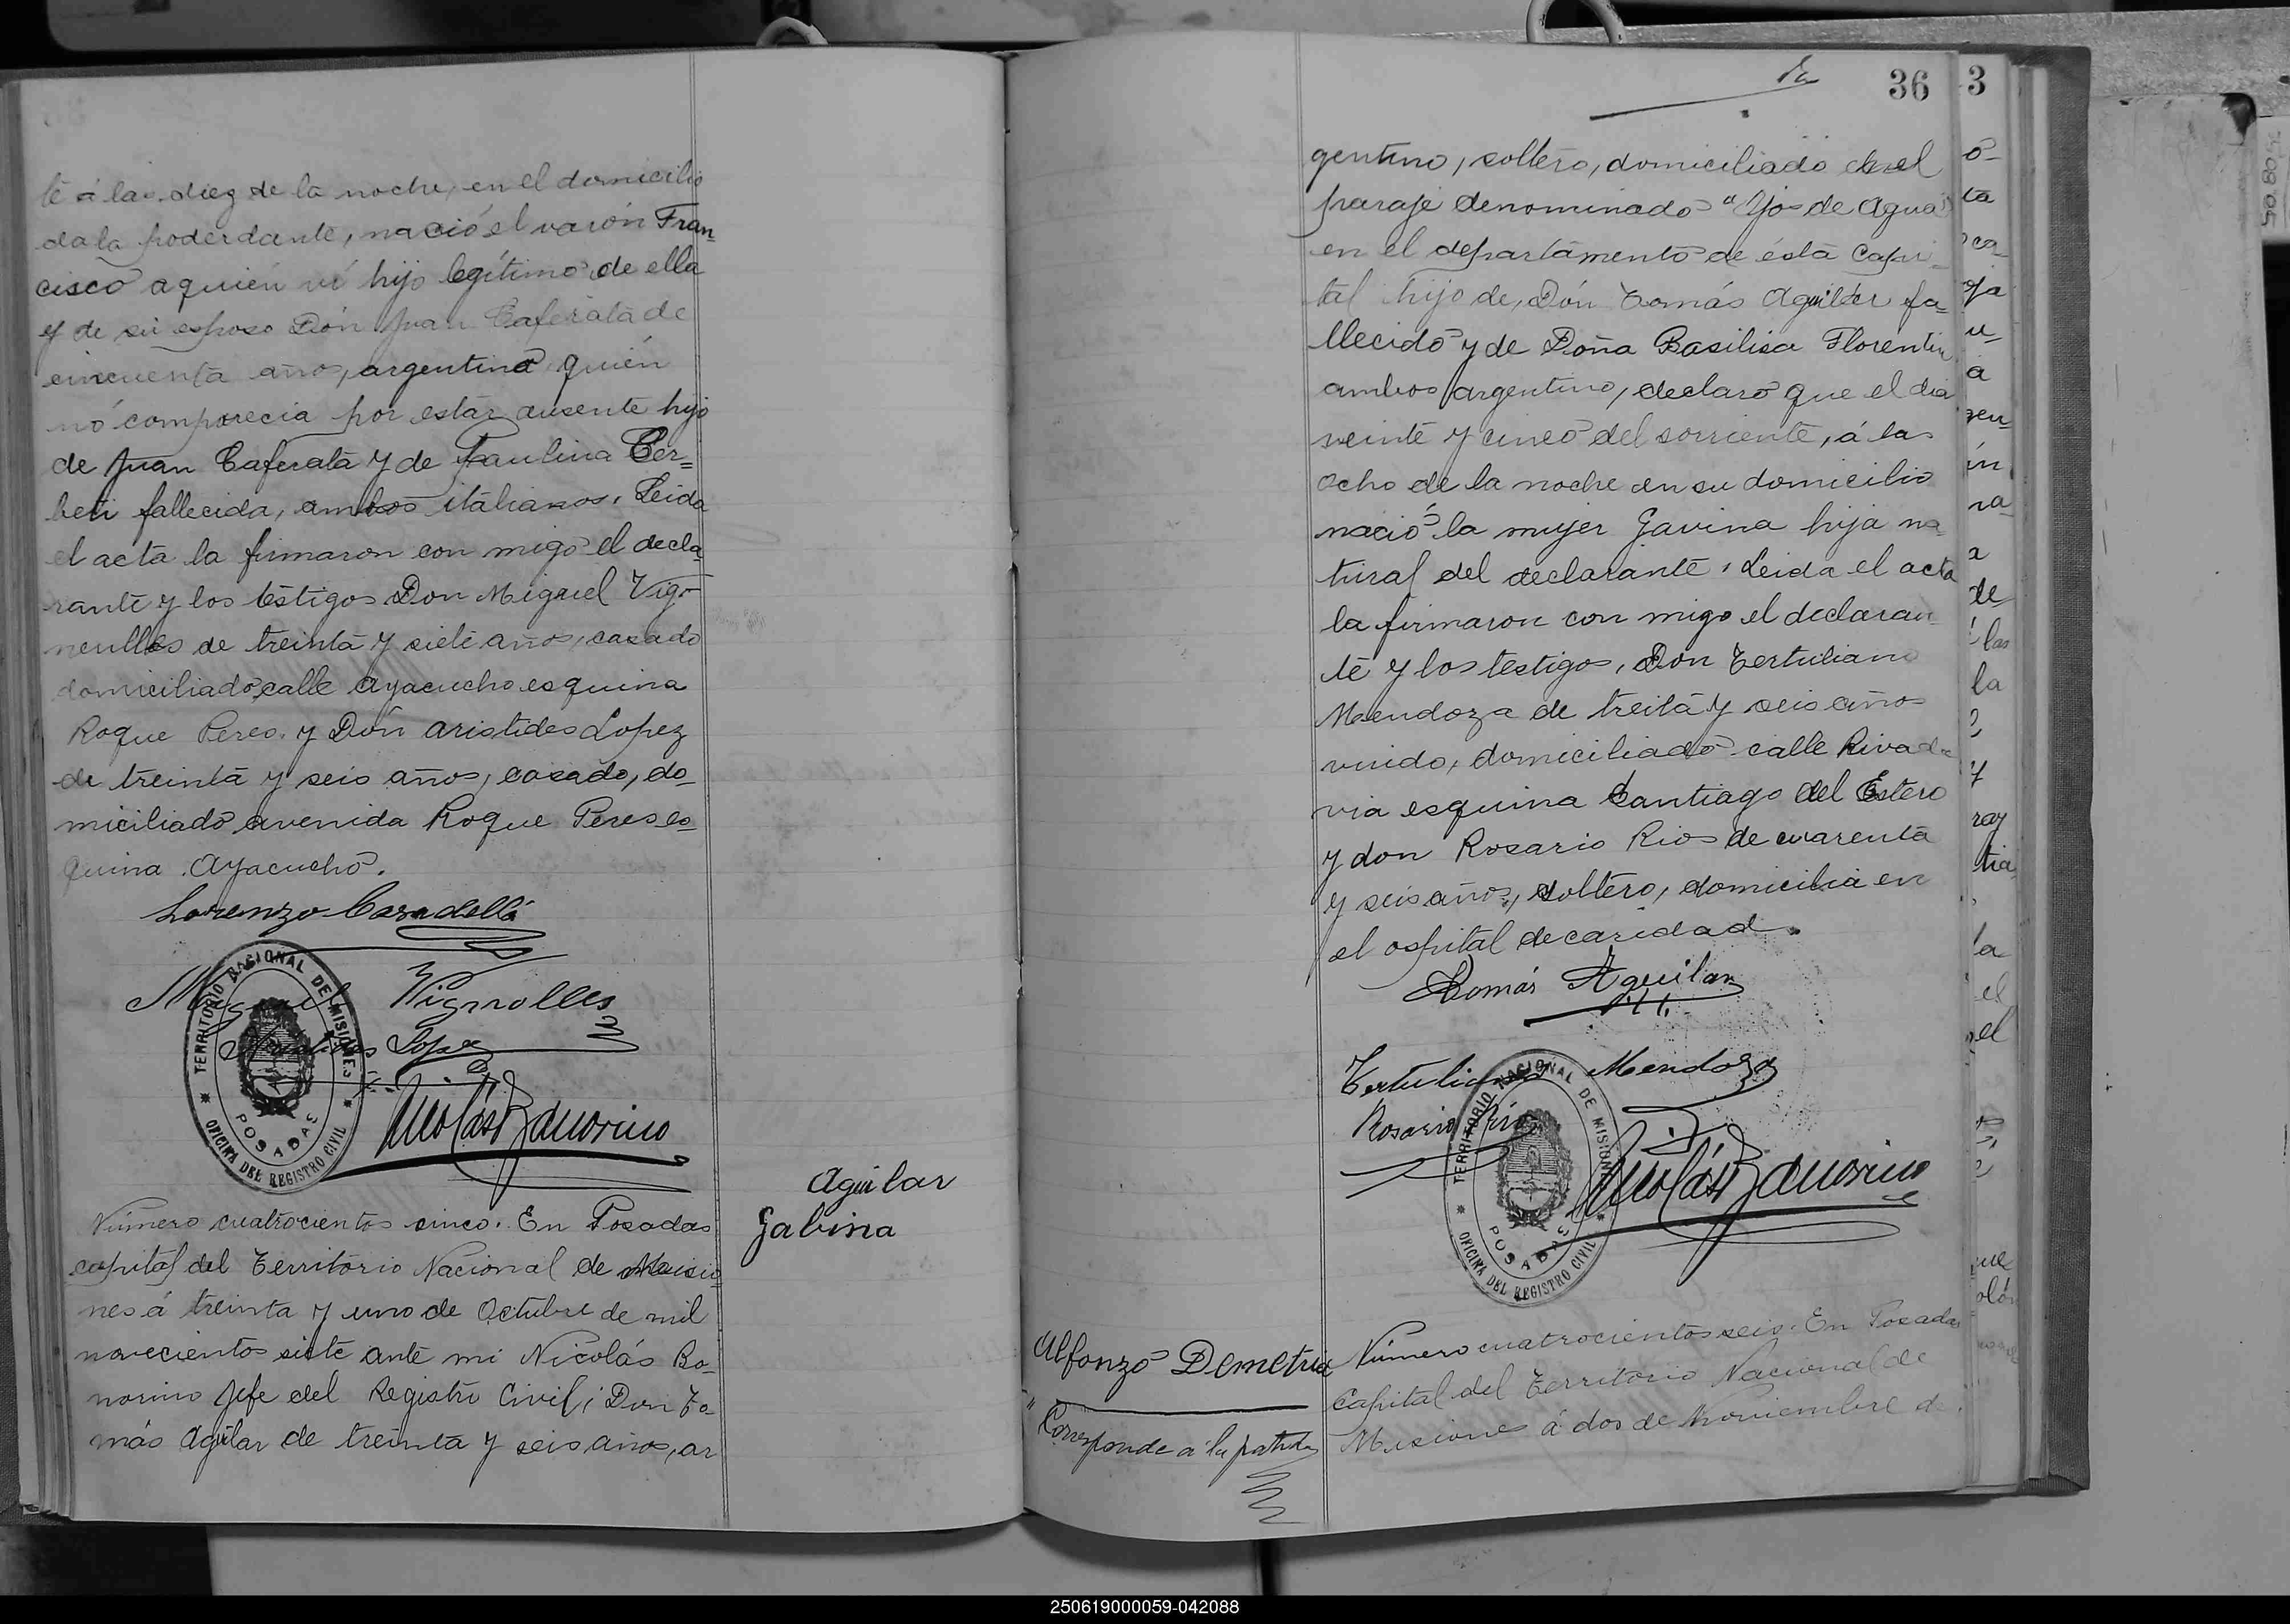 te á las diez de la noche, en el domicilio
da la poderdante, nació el varón Fran-
cisco aquién ví hijo legítimo de ella
y de su esposo Dón Juan Caferata de
cincuenta años, argentino quién
nó comparecia por estár ausente hijo
de Juan Caferata y de Paulina Cer=
beti fallecida, ambos italianos. Leida
el acta la firmaron con migo el decla-
rante y los testigos Don Miguel Vig-
nenlles de treinta y siete años, casado
domiciliado calle Ayacucho esquina
Roque Peres. y Dón Aristides Lopez
de treinta y seis años, casado, do-
miciliado avenida Roque Peres es-
quina Ayacucho.
Lorenzo
Miguel Vignolles
Aristides Lopez
Nicolás Bonorino
TERRITORIO NACIONAL DE MISIONES
POSADAS
OFICINA DEL REGISTRO CIVIL
Aguilar
Gabina
Número cuatrocientos cinco. En Posadas
capital del Territorio Nacional de Misio-
nes á treinta y uno de Octubre de mil
novecientos siete ante mi Nicolás Bo-
norino Jefe del Registro Civil; Don To-
más Aguilar de treinta y seis años, ar
36
gentino, soltero, domiciliado en el
paraje denominado "Ojo de Agua"
en el departamento de ésta Capi-
tal hijo de, Dón Tomás Aguilar fa-
llecido y de Doña Basilisa Florentin
ambos argentino, declaró que el dia
veinte y cinco del sorriente, á las
ocho de la noche en su domicilio
nació la mujer Gavina hija na-
tural del declarante. Leida el acta
la firmaron con migo el declaran-
te y los testigos, Don Tertuliano
Mendoza de treita y seis años
viudo, domiciliado calle Rivada-
via esquina Santiago del Estero
y don Rosario Rios de cuarenta
y seis años, soltero, domicilia en
el ospital de caridad.
Tomás Aguilar
Tertuliano Mendoza
Rosario Rios
Nicolás Bonorino
TERRITORIO NACIONAL DE MISIONES
POSADAS
OFICINA DEL REGISTRO CIVIL
Alfonzo Demetria
Corresponde a la partida
Número cuatrocientos seis. En Posadas
Capital del Territorio Nacional de
Misiones á dos de Noviembre de
3
250619000059-042088